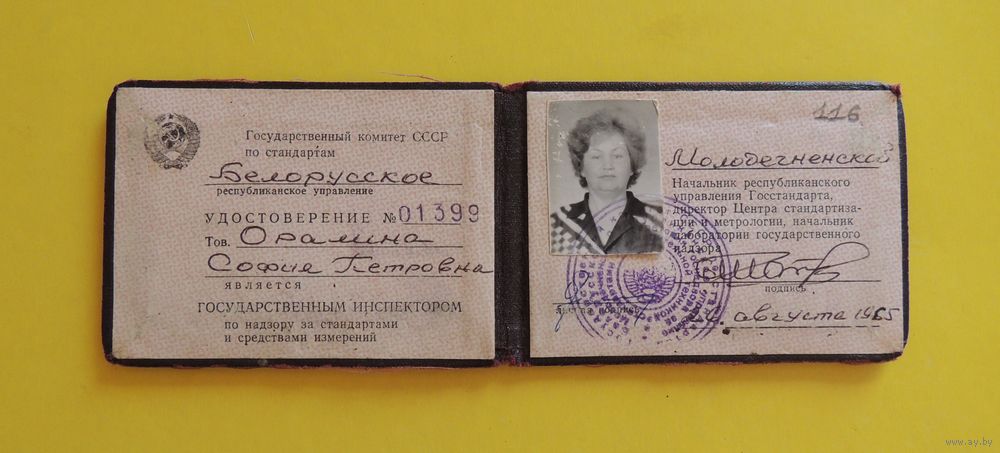 Государственный комитет СССР
по стандартам
Белорусское
республиканское управление
УДОСТОВЕРЕНИЕ № 01399
Тов. Орамина
София Петровна
является
ГОСУДАРСТВЕННЫМ ИНСПЕКТОРОМ
по надзору за стандартами
и средствами измерений
116
Молодечненской
Начальник республиканского
управления Госстандарта,
директор Центра стандартиза-
ции и метрологии, начальник
лаборатории государственного
надзора
подпись
августа 1965
www.ay.by